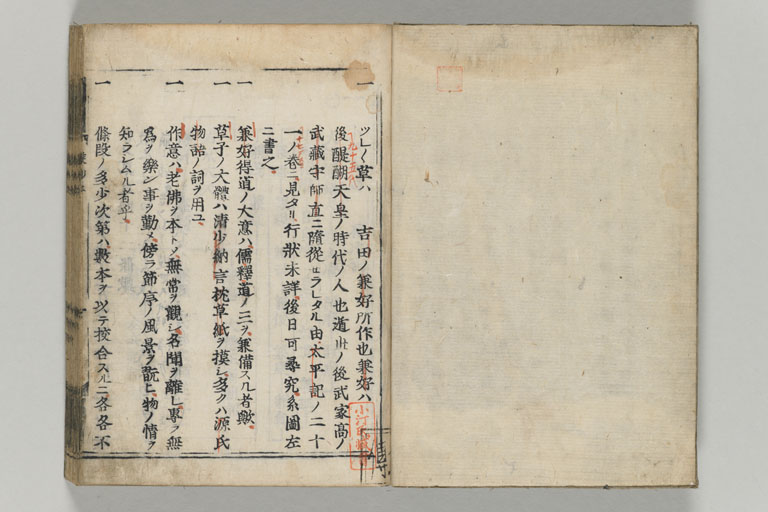 一 ツレ〱草ハ 吉田ノ兼好所作也兼好ハ
後醍醐天皇ノ時代ノ人也遁世ノ後武家高ノ
武蔵守師直ニ隨從せラレタル由太平記ノ二十
一ノ巻ニ見タリ行狀未詳後日可尋究系圖左
ニ書之
一 兼好得道ノ大意ハ儒釋道ノ三ヲ兼備スル者歟
一 草子ノ大體ハ清少納言枕草紙ヲ摸シ多クハ源氏
物語ノ詞ヲ用ユ
一 作意ハ老佛ヲ本トメ無常ヲ觀シ名聞ヲ離レ專ラ無
爲ヲ樂ン事ヲ勤メ傍ラ節序ノ風景ヲ翫ヒ物ノ情ヲ
知ラシムル者乎
一 條段ノ多少次第ハ數本ヲ以テ挍合スルニ各各不